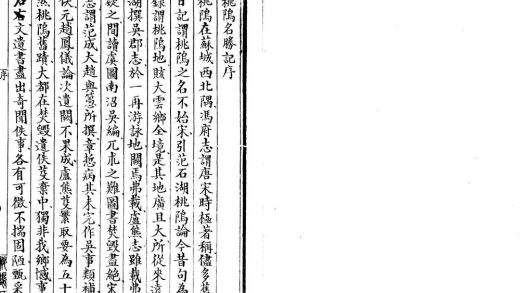 桃隝名勝記序
桃隝在蘇城西北隅馮府志謂唐宋時極著稱儘多舊
日記謂桃隝之名不始宋引范石湖桃隝論今昔句為
錄謂桃隝地賅大雲鄉全境是其地廣且大所從來遠
湖撰吳郡志於一再游詠地闕焉弗載盧熊志雖載弗
疑之間讀虞圖南沼吳編兀朮之難圖書焚毀盡絕宋
志謂范成大趙與𥲅所撰章悊病其未完作吳事類補
佚元趙鳳儀論次遺闕不果成盧熊芟繁取要為五十
無桃隝舊蹟大都在焚毀遺佚芟棄中獨非我鄉憾事
石右文遺書盡出奇聞佚事各有可徵不揣固陋甄采
序